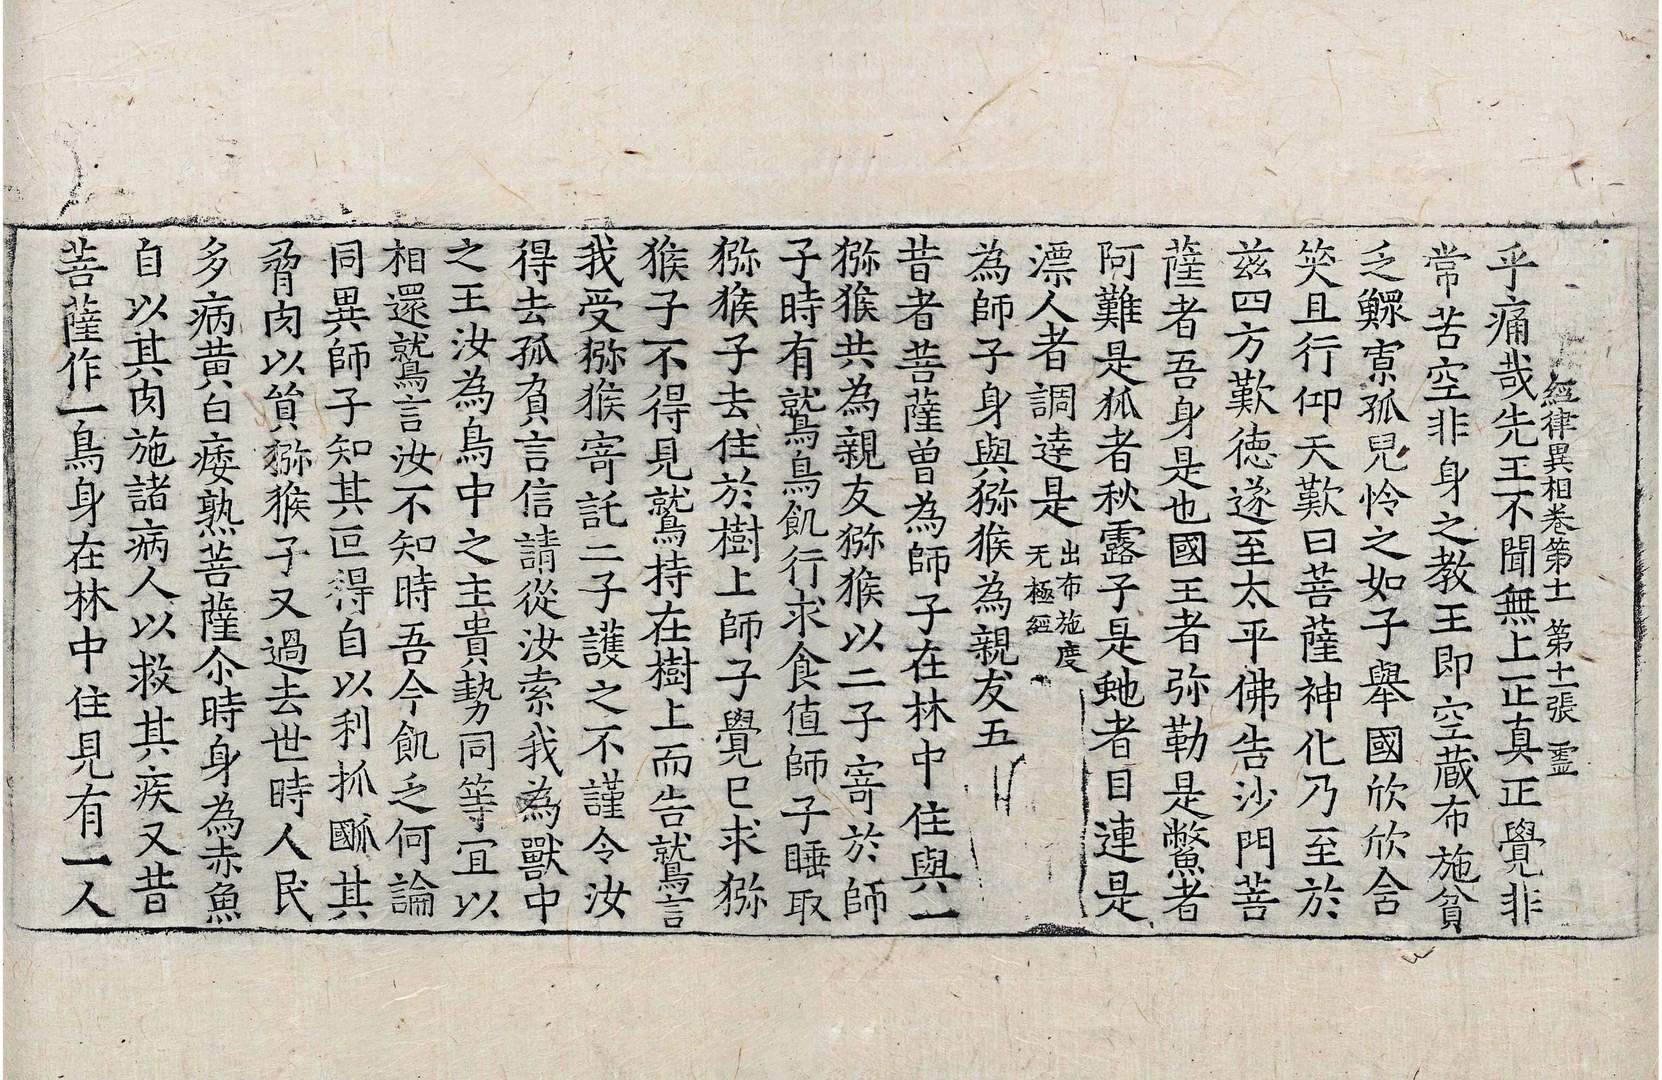 經律異相卷第十一 第十二張 靈
乎痛哉先王不聞無上正真正覺非
常苦空非身之教王即空藏布施貧
乏鰥寡孤兒怜之如子舉國欣欣含
笑且行仰天歎曰菩薩神化乃至於
茲四方歎德遂至太平佛告沙門菩
薩者吾身是也國王者弥勒是鱉者
阿難是狐者秋露子是虵者目連是
漂人者調達是 出布施度无極經
為師子身與獼猴為親友五
昔者菩薩曽為師子在林中住與一
獼猴共為親友獼猴以二子寄於師
子時有鷲鳥飢行求食值師子睡取
獼猴子去住於樹上師子覺已求獼
猴子不得見鷲持在樹上而告鷲言
我受獼猴寄託二子護之不謹令汝
得去孤負言信請從汝索我為獸中
之王汝為鳥中之主貴勢同等宜以
相還鷲言汝不知時吾今飢乏何論
同異師子知其叵得自以利抓𧣾其
脅肉以貿獼猴子又過去世時人民
多病黄白痿熟菩薩尒時身為赤魚
自以其肉施諸病人以救其疾又昔
菩薩作一鳥身在林中住見有一人